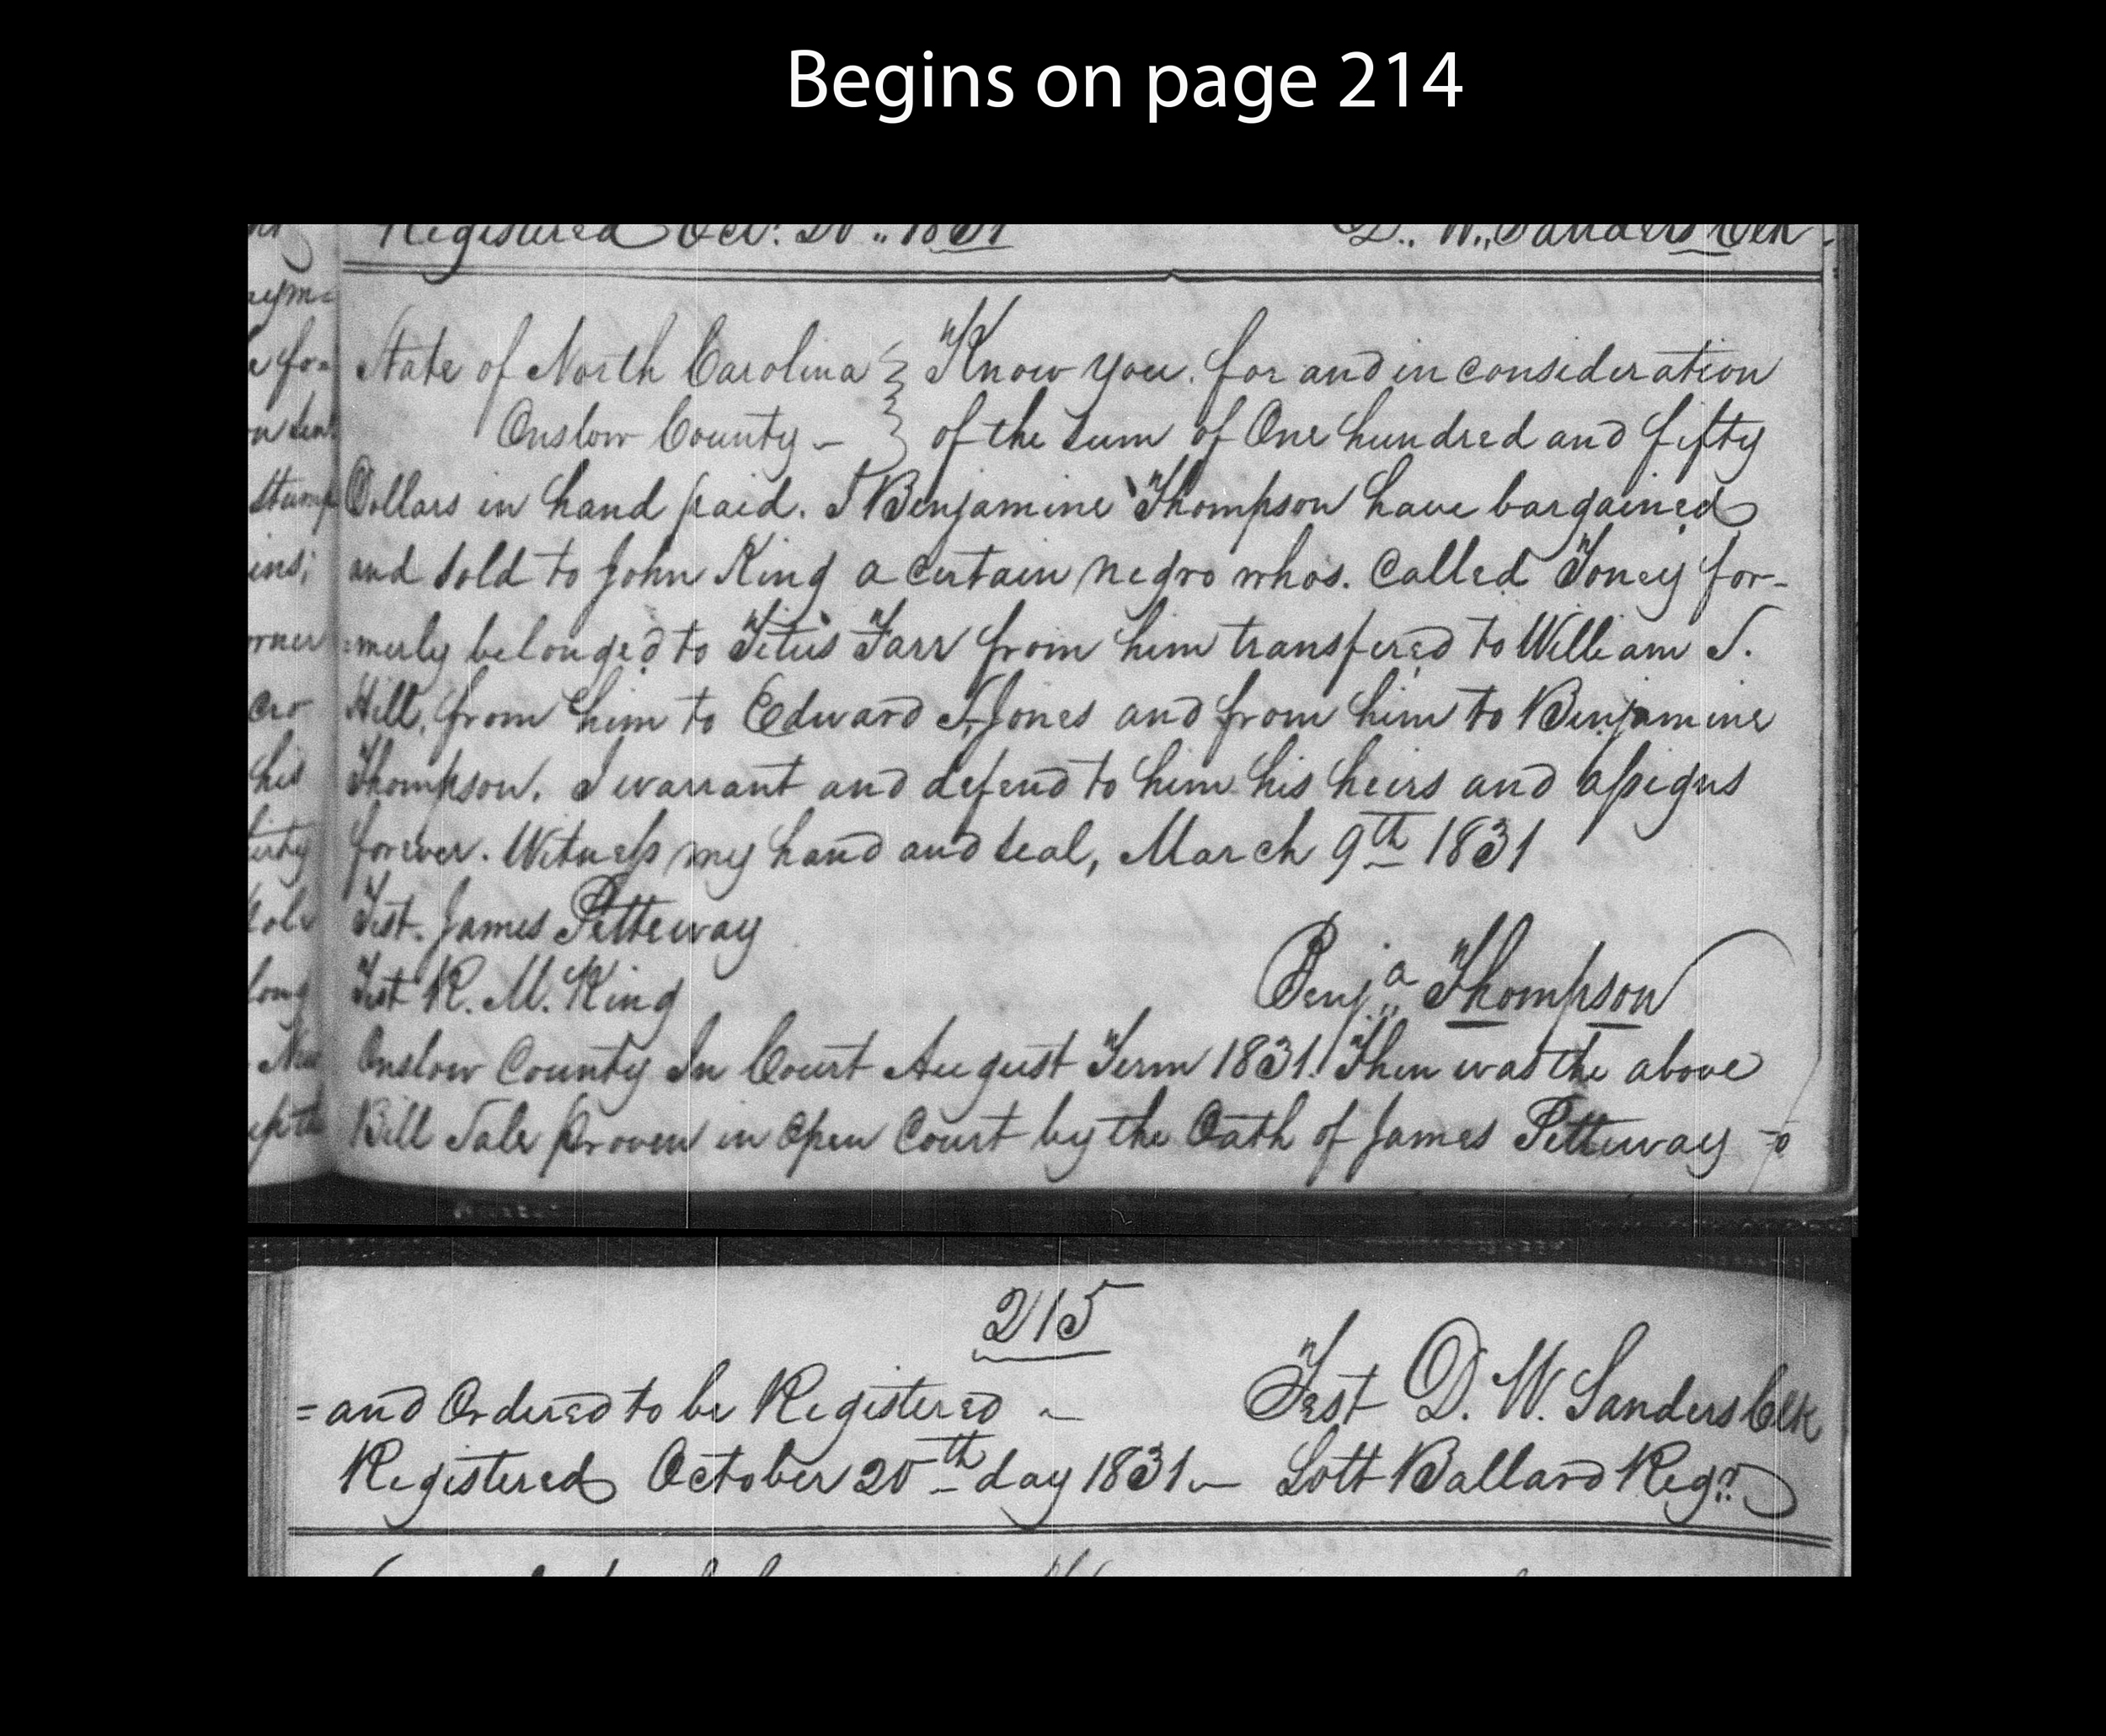 Begins on page 214
Registered Oct. 20 .. 1831 D., W., Sanders Clk.
State of North Carolina Know you. for and in consideration
Onslow County – of the sum of One hundred and fifty
Dollars in hand paid. I Benjamine Thompson have bargained
and sold to John King a certain negro whos. Called Toney for-
=merly belonged to Titus Farr from him transfered to William S.
Hill, from him to Edward S. Jones and from him to Benjamine
Thompson. I warrant and defend to him his heirs and assigns
forever. Witness my hand and seal, March 9th 1831
Test. James Petteway
Test R. M. King Benja Thompson
Onslow County In Court August Term 1831. Then was the above
Bill Sale Proven in Open Court by the Oath of James Petteway
215
=and Ordered to be Registered – Test D. W. Sanders Clk
Registered October 20th day 1831 – Lott Ballard Regr.